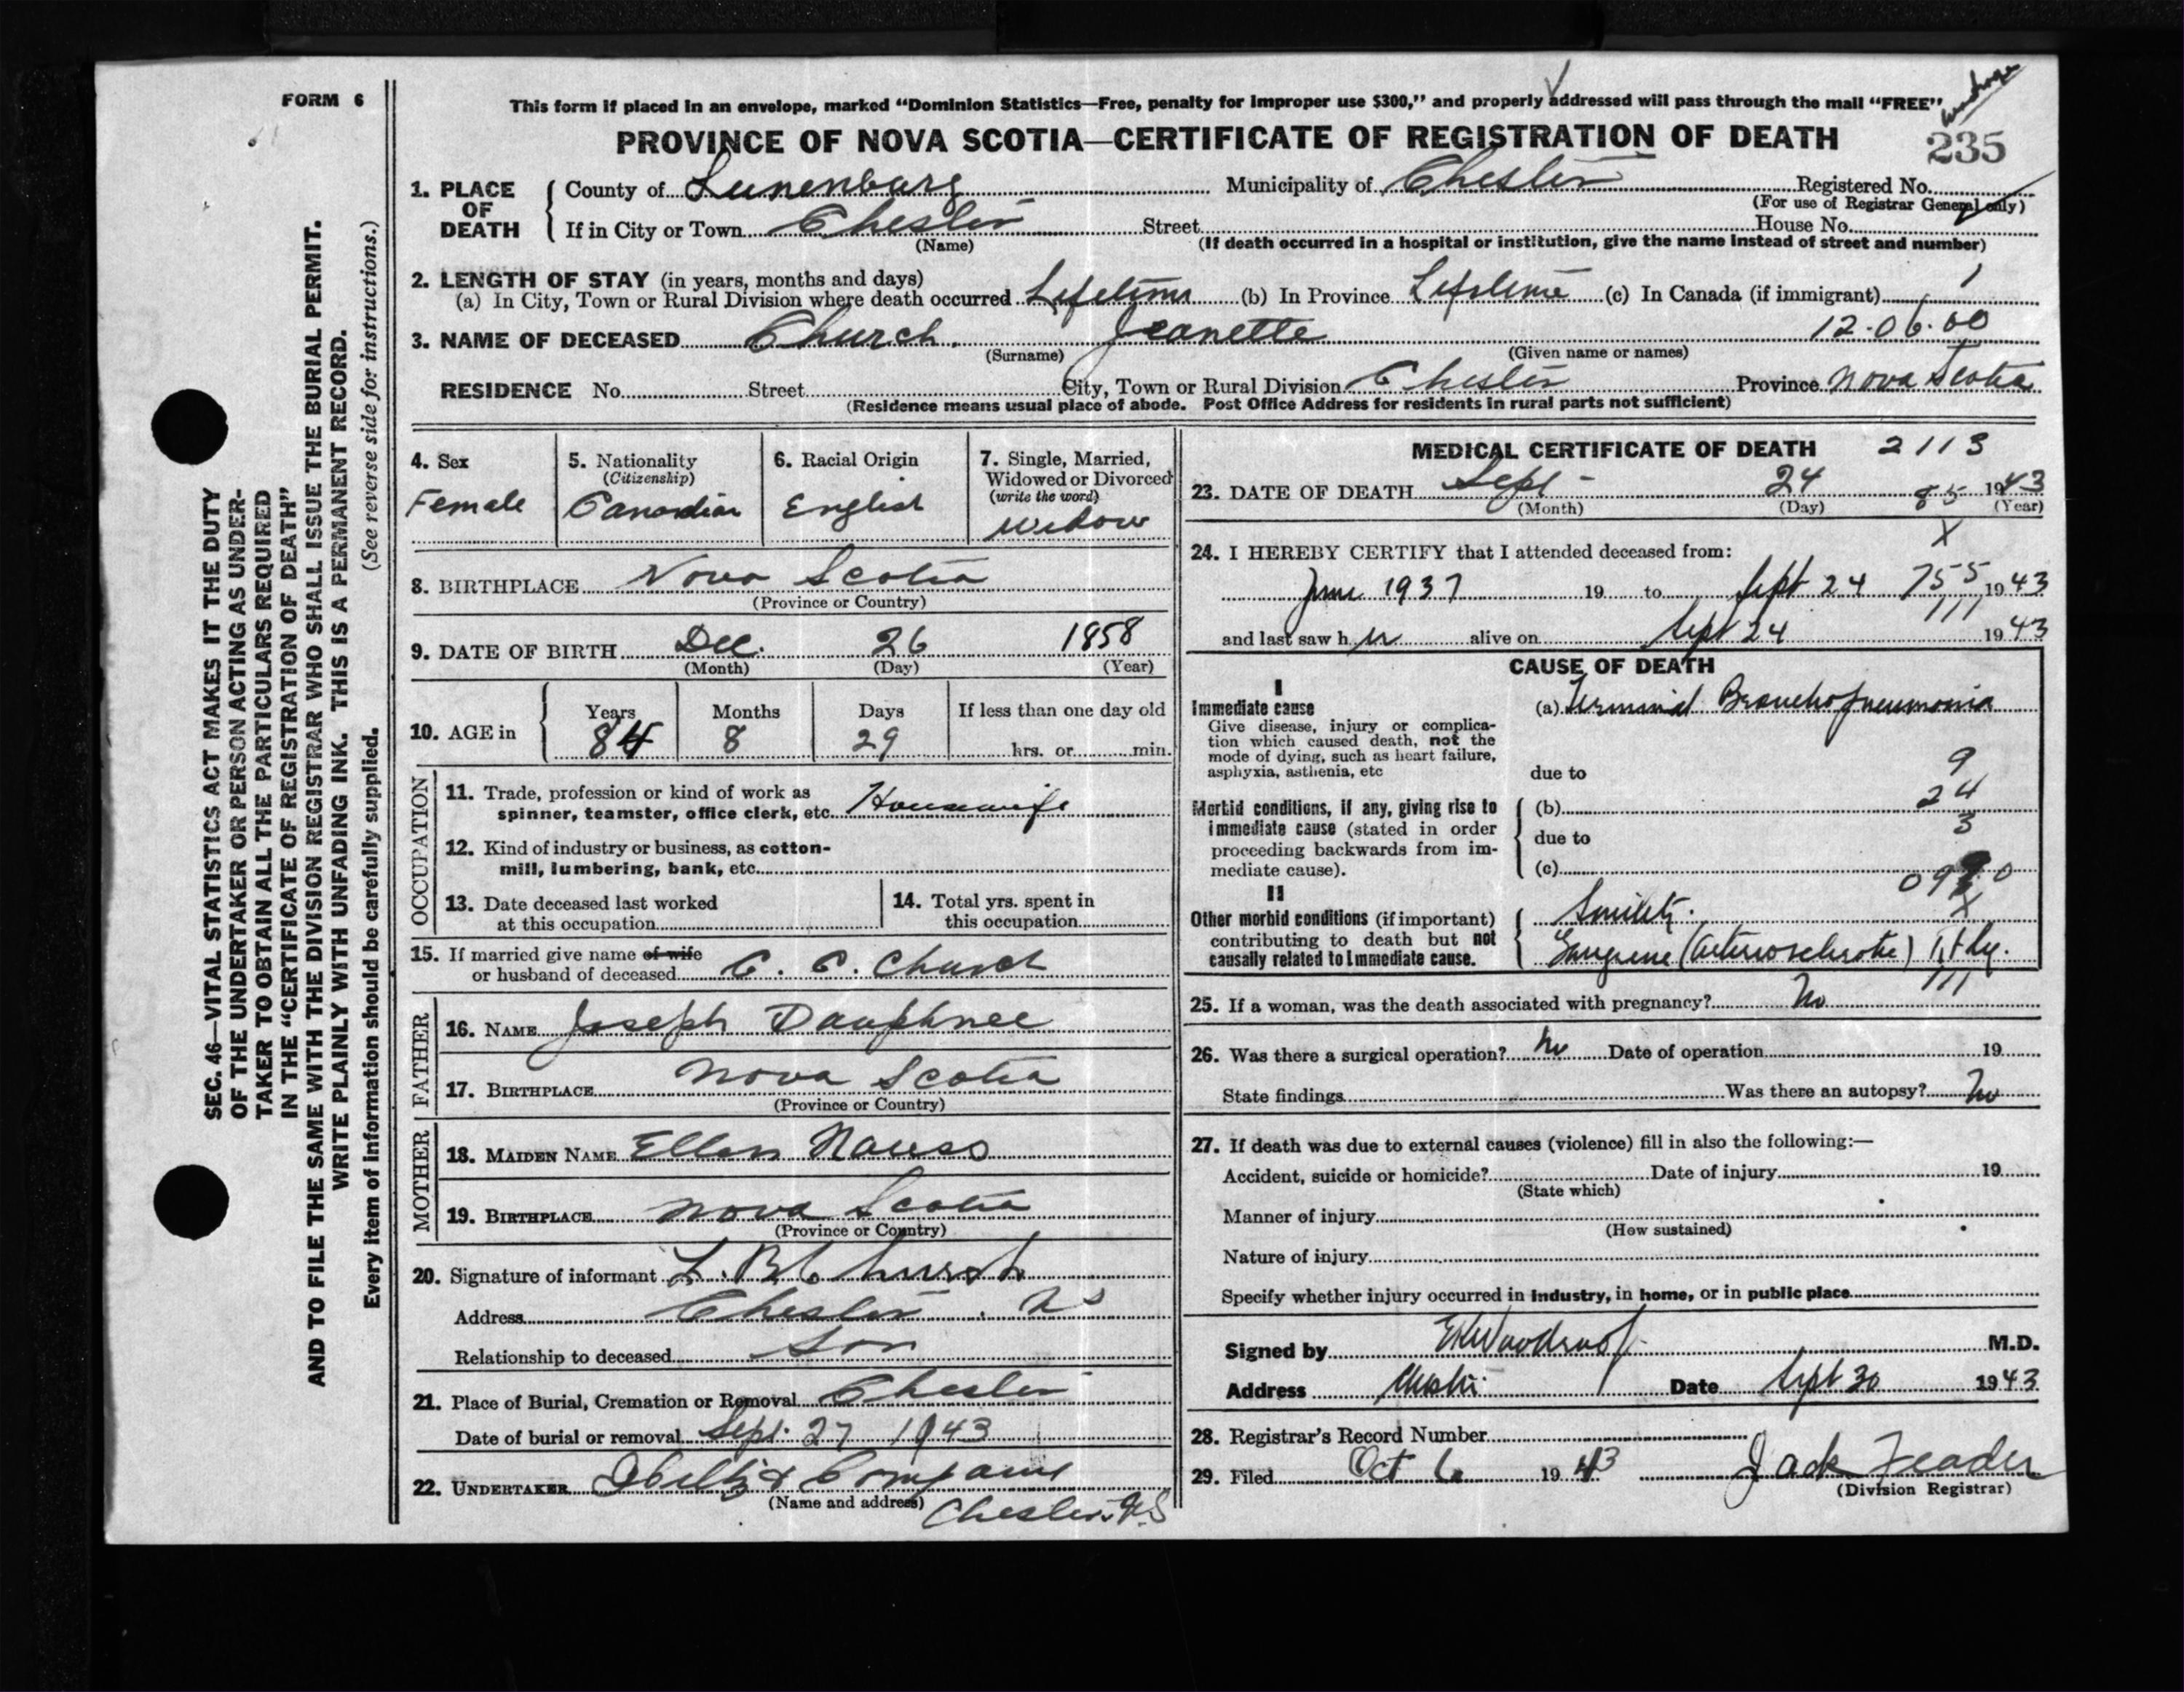 FORM 6
This form if placed in an envelope, marked “Dominion Statistics—Free, penalty for improper use $300,” and properly addressed will pass through the mail “FREE”
PROVINCE OF NOVA SCOTIA—CERTIFICATE OF REGISTRATION OF DEATH
235
1. PLACE OF DEATH
County of Lunenburg Municipality of Chester Registered No.
(For use of Registrar General only)
If in City or Town Chester Street House No.
(Name) (If death occurred in a hospital or institution, give the name instead of street and number)
2. LENGTH OF STAY (in years, months and days)
(a) In City, Town or Rural Division where death occurred Lifetime (b) In Province Lifetime (c) In Canada (if immigrant)
3. NAME OF DECEASED Church. Jeanette 12.06.00
(Surname) (Given name or names)
RESIDENCE No. Street City, Town or Rural Division Chester Province Nova Scotia
(Residence means usual place of abode. Post Office Address for residents in rural parts not sufficient)
4. Sex
Female
5. Nationality
(Citizenship)
Canadian
6. Racial Origin
English
7. Single, Married,
Widowed or Divorced
(write the word)
Widow
8. BIRTHPLACE Nova Scotia
(Province or Country)
9. DATE OF BIRTH Dec. 26 1858
(Month) (Day) (Year)
10. AGE in
Years Months Days If less than one day old
84 8 29 hrs. or min.
OCCUPATION
11. Trade, profession or kind of work as
spinner, teamster, office clerk, etc. Housewife
12. Kind of industry or business, as cotton-
mill, lumbering, bank, etc.
13. Date deceased last worked
at this occupation
14. Total yrs. spent in
this occupation
15. If married give name of wife
or husband of deceased C. C. Church
FATHER
16. NAME Joseph Dauphnee
17. BIRTHPLACE Nova Scotia
(Province or Country)
MOTHER
18. MAIDEN NAME Ellen Nauss
19. BIRTHPLACE Nova Scotia
(Province or Country)
20. Signature of informant L. B. Church
Address Chester NS
Relationship to deceased Son
21. Place of Burial, Cremation or Removal Chester
Date of burial or removal Sept. 27 1943
22. UNDERTAKER & Company
(Name and address) Chester. N.S
MEDICAL CERTIFICATE OF DEATH 2113
23. DATE OF DEATH Sept - 24 85 1943
(Month) (Day) (Year)
X
24. I HEREBY CERTIFY that I attended deceased from:
June 1937 19 to Sept 24 755 1943
111
and last saw her alive on Sept 24 1943
CAUSE OF DEATH
I
Immediate cause
Give disease, injury or complica-
tion which caused death, not the
mode of dying, such as heart failure,
asphyxia, asthenia, etc
(a) Terminal Bronchopneumonia
due to 9
Morbid conditions, if any, giving rise to
immediate cause (stated in order
proceeding backwards from im-
mediate cause).
(b) 24
due to 3
(c)
II
Other morbid conditions (if important)
contributing to death but not
causally related to immediate cause.
Senility.
X
Gangrene (arteriosclerotic) rt leg.
111
25. If a woman, was the death associated with pregnancy? No
26. Was there a surgical operation? No Date of operation 19
State findings Was there an autopsy? No
27. If death was due to external causes (violence) fill in also the following:—
Accident, suicide or homicide? Date of injury 19
(State which)
Manner of injury
(How sustained)
Nature of injury
Specify whether injury occurred in industry, in home, or in public place
Signed by M.D.
Address Chester Date Sept 30 1943
28. Registrar's Record Number
29. Filed Oct 6 1943 Jack
(Division Registrar)
SEC. 46—VITAL STATISTICS ACT MAKES IT THE DUTY
OF THE UNDERTAKER OR PERSON ACTING AS UNDER-
TAKER TO OBTAIN ALL THE PARTICULARS REQUIRED
IN THE “CERTIFICATE OF REGISTRATION OF DEATH”
AND TO FILE THE SAME WITH THE DIVISION REGISTRAR WHO SHALL ISSUE THE BURIAL PERMIT.
WRITE PLAINLY WITH UNFADING INK. THIS IS A PERMANENT RECORD.
(See reverse side for instructions.)
Every item of information should be carefully supplied.